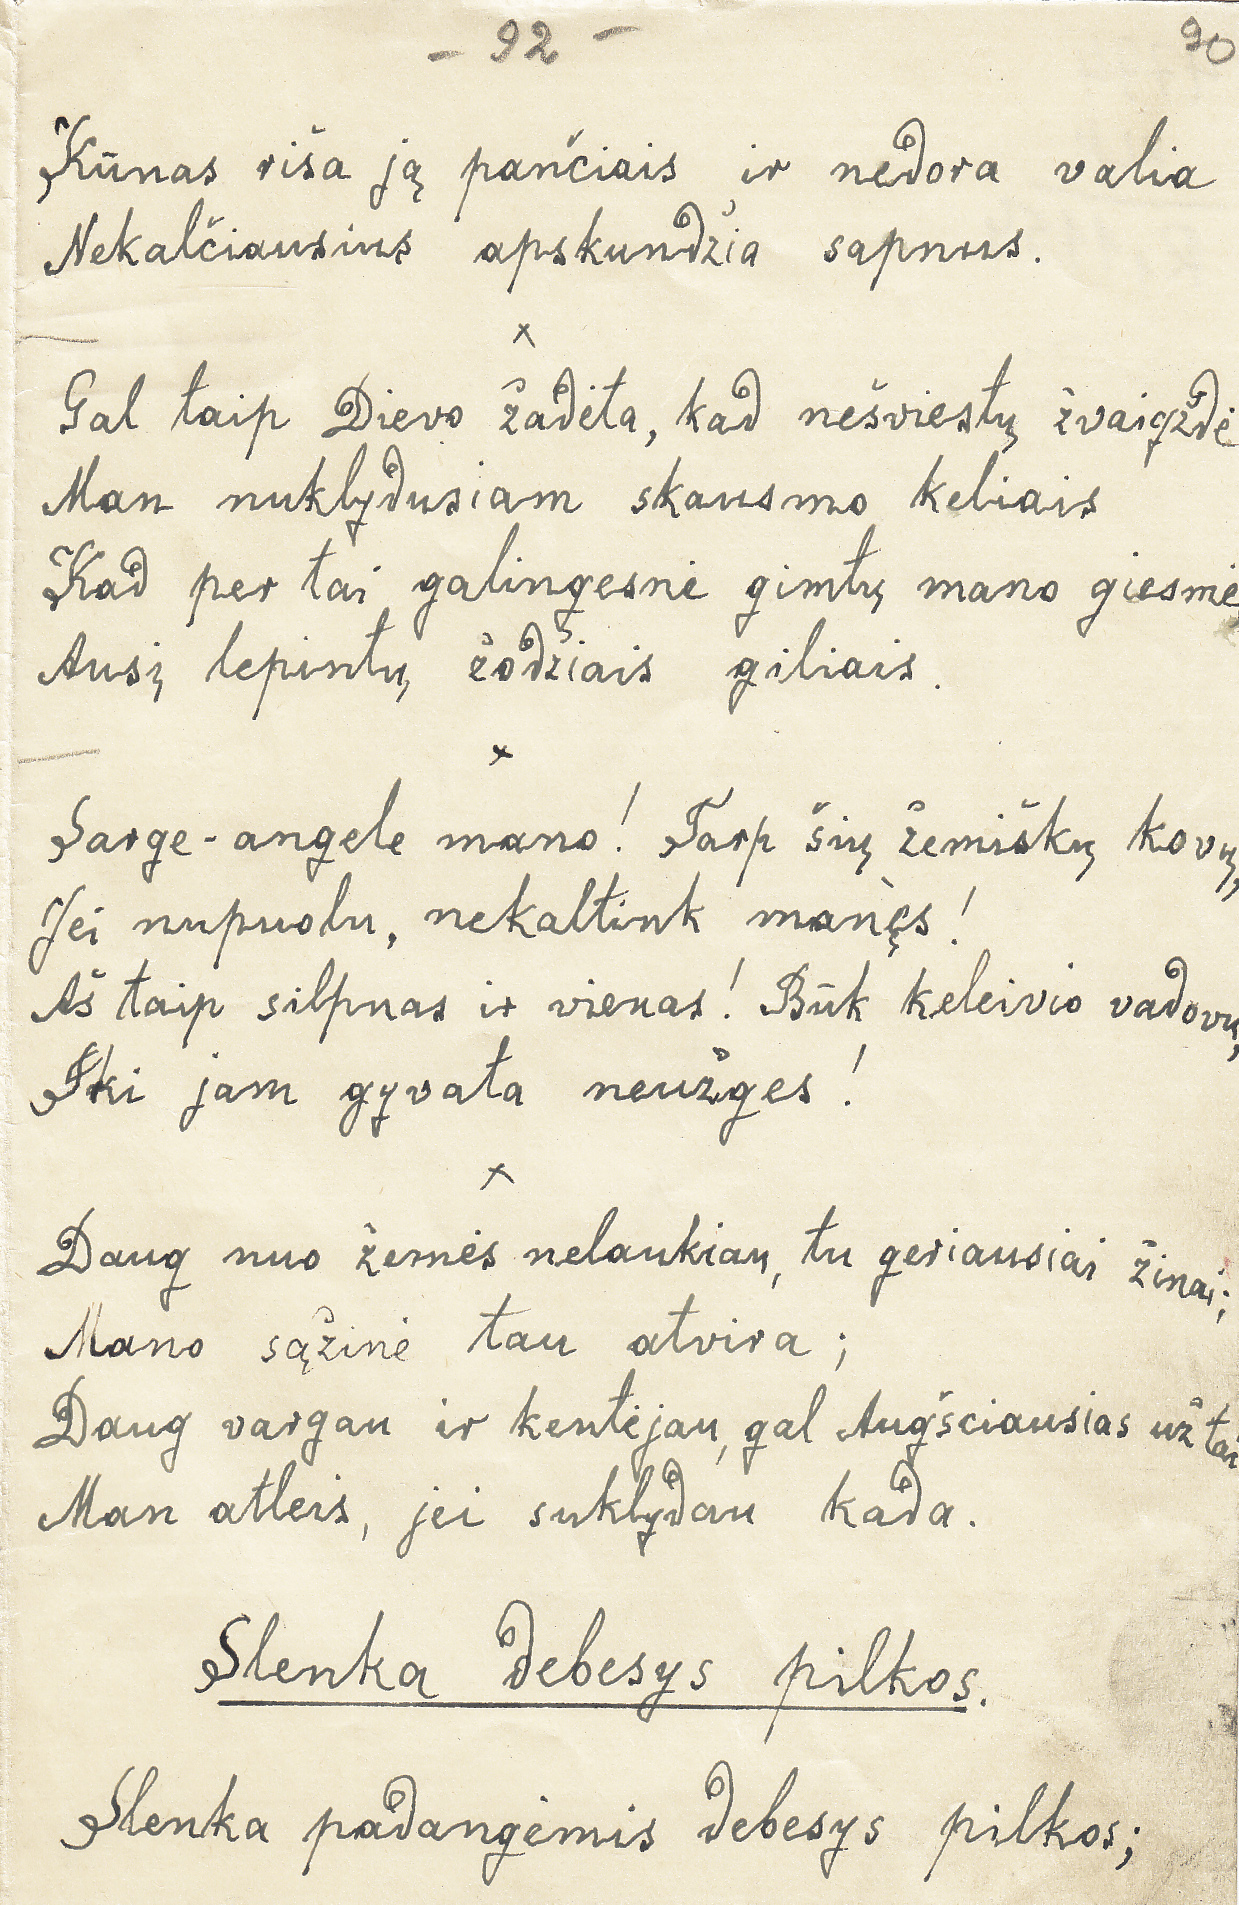 - 92 -
90
Kūnas riša ją pančiais ir nedora valia
Nekalčiausius apskundžia sapnus.
x
Gal taip Dievo žadėta, kad nešviestų žvaigždė
Man nuklydusiam skausmo keliais
Kad per tai galingesnė gimtų mano giesmė,
Ausį lepintų žodžiais giliais.
x
Sarge-angele mano! Tarp šių žemiškų kovų,
Jei nupuolu, nekaltink manęs!
Aš taip silpnas ir vienas! Būk keleivio vadovu,
Iki jam gyvata neužges!
x
Daug nuo žemės nelaukiau, tu geriausiai žinai;
Mano sąžinė tau atvira;
Daug vargau ir kentėjau, gal Augščiausias už tai
Man atleis, jei suklydau kada.
Slenka debesys pilkos.
Slenka padangėmis debesys pilkos;